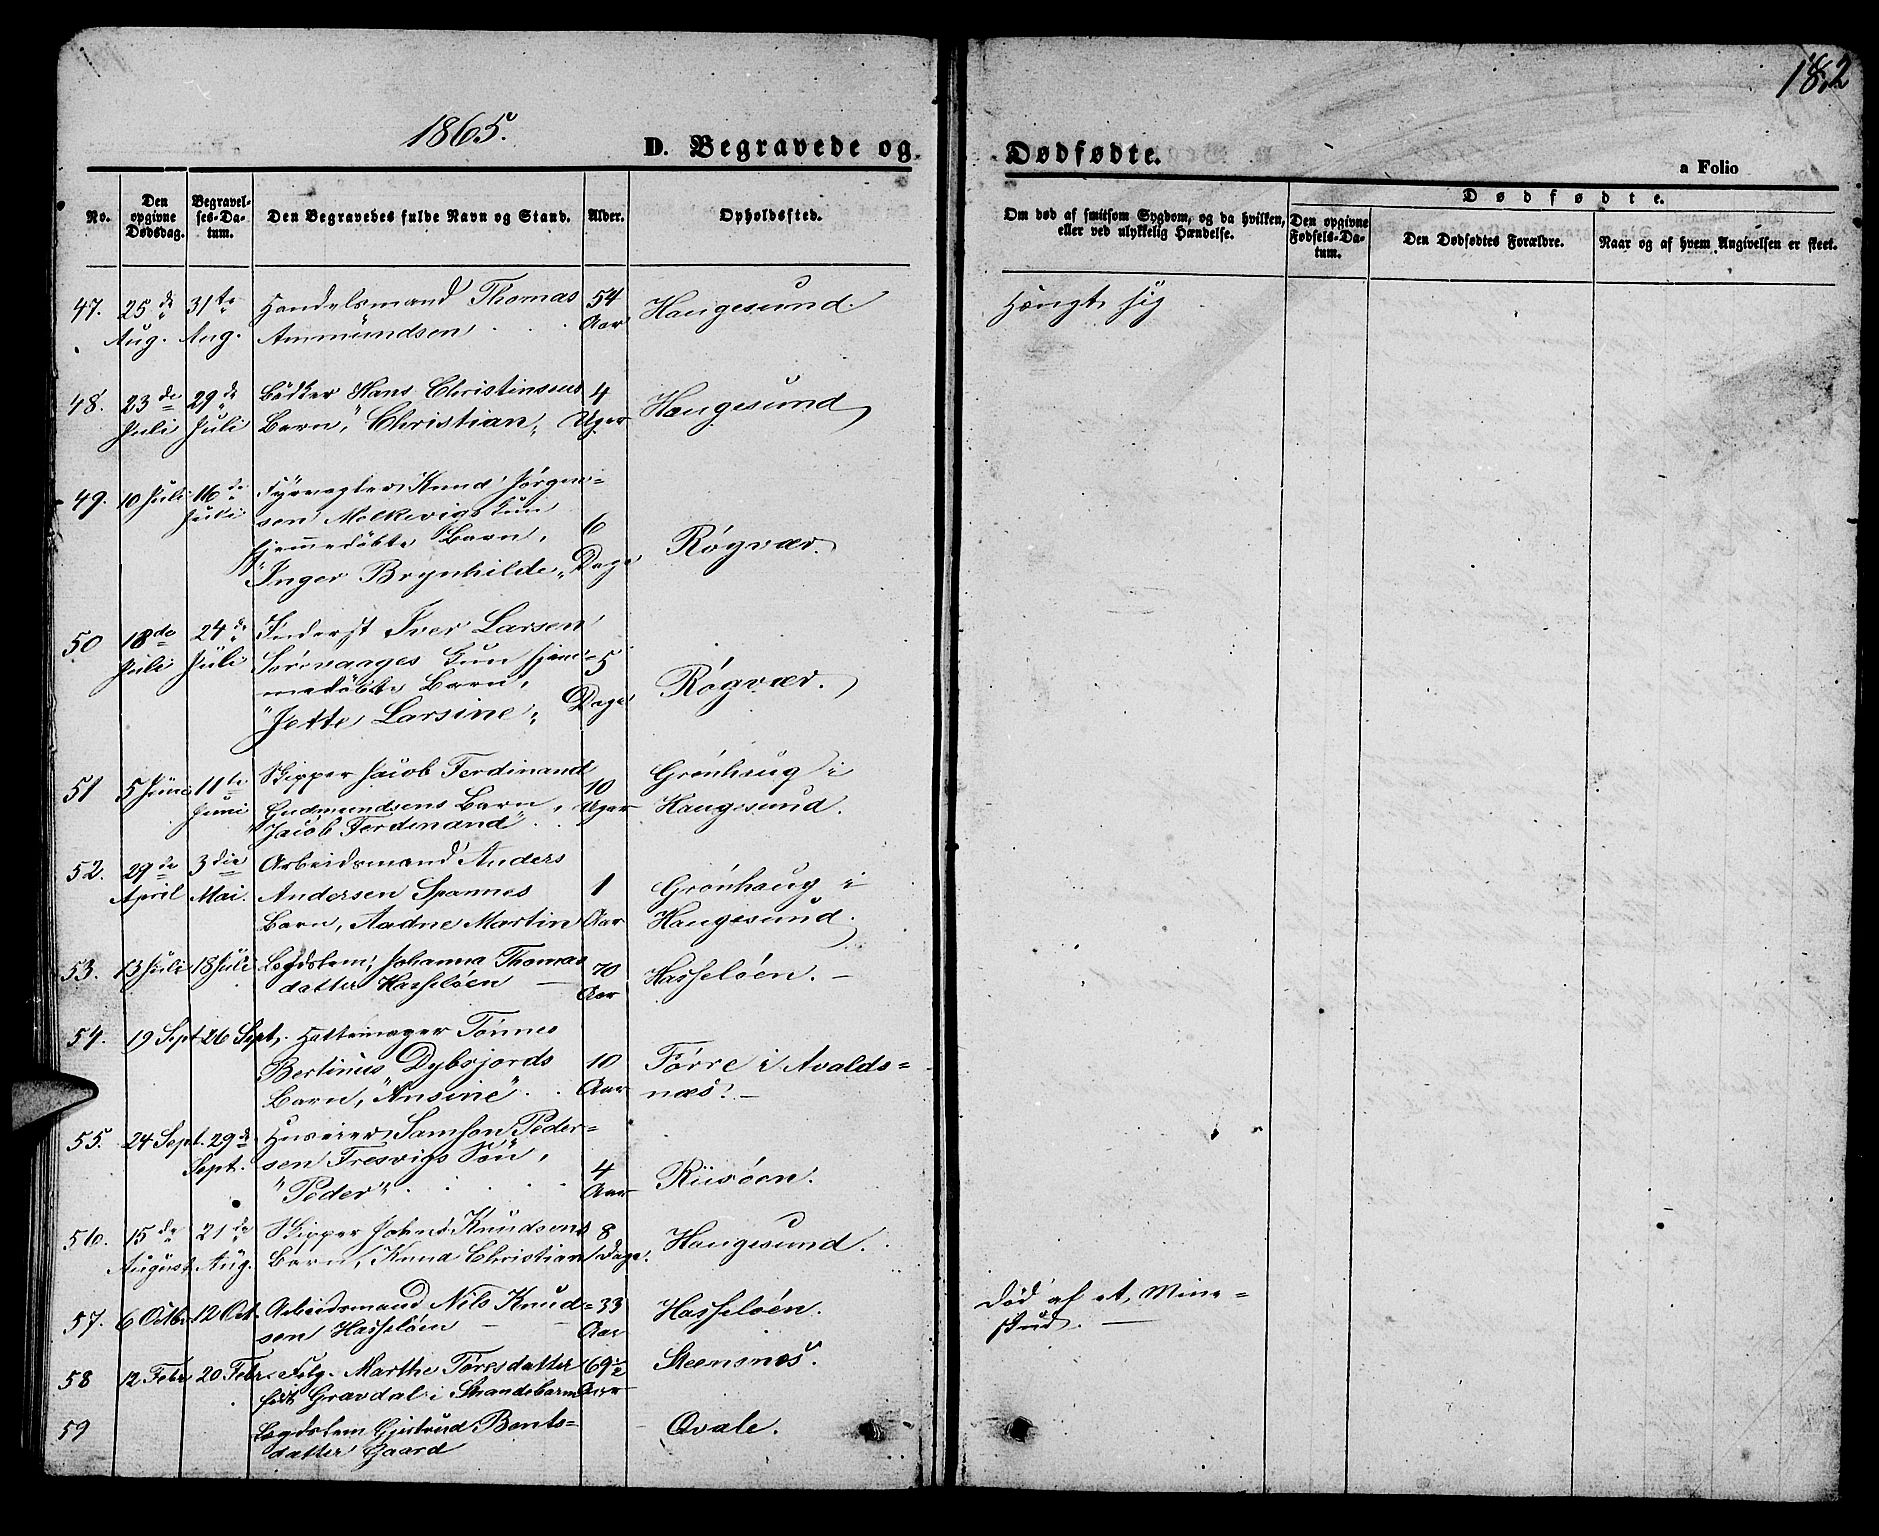 182
1865.
D. Begravede og
Dødfødte.
a Folio
No.
Den opgivne Dødsdag.
Begravelses-Datum.
Den Begravedes fulde Navn og Stand.
Alder.
Opholdssted.
Om død af smitsom Sygdom, og da hvilken,
eller ved ulykkelig Hændelse.
Dødfødte.
Den opgivne Fødsels-Datum.
Den Dødfødtes Forældre.
Naar og af hvem Angivelsen er skeet.
47. 25de 31te Handelsmand Thomas 54 Haugesund. Hængt sig
Aug. Aug. Ammundsen . . . Aar
48. 23de 29de Bødker Hans Christinsens 4 Haugesund
Juli Juli Barn, "Christian" Uger
49. 10 Juli 16de Fyrvogter Knud Jørgen=
Juli sen Molkevigs hun
hjemmedøbte Barn, 6 Røgvær.
"Inger Brynhilde" Dage
50 18de 24de Inderst Iver Larsen
Juli Juli Sørevaages hun hjem= 5
medøbte Barn, Røgvær.
"Jette Larsine" Dage
51 5 Juni 11te Skipper Jacob Ferdinand 10 Grønhaug i
Juni Gudmundsens Barn, Uger Haugesund.
"Jacob Ferdinand" . .
52. 29de 3die Arbeidsmand Anders
April Mai. Andersen Spannes 1 Grønhaug i
Barn, Aadne Martin Aar Haugesund.
53. 13 Juli 18 Juli Lægdslem, Johanna Thomas 70 Hasseløen. –
datter Hasseløen — Aar
54. 19 Sept 26 Sept. Hattemager Tønnes
Bertinus Dybsjords 10 Førre i Avalds=
Barn, "Ansine" . . Aar næs. –
55. 24 Sept. 29de Huseier Samson Peder=
Sept. sen Tresvigs Søn, 4 Riisøen.
"Peder" . . . . Aar
56. 15de 21de Skipper John Knudsens 8 Haugesund.
August Aug. Barn, Knud Christian Dage.
57. 6 Octbr 12 Oct. Arbeidsmand Nils Knud= 33 Hasseløen. Død af et Mine=
sen Hasseløen — Aar skud. —
58 12 Febr 20 Febr. Felg. Marthe Toresdatter 69½ Steensnæs.
født Gravdal i Strandebarm Aar
59 Lægdslem Gjertrud Bents= Qvale.
datter Gaard